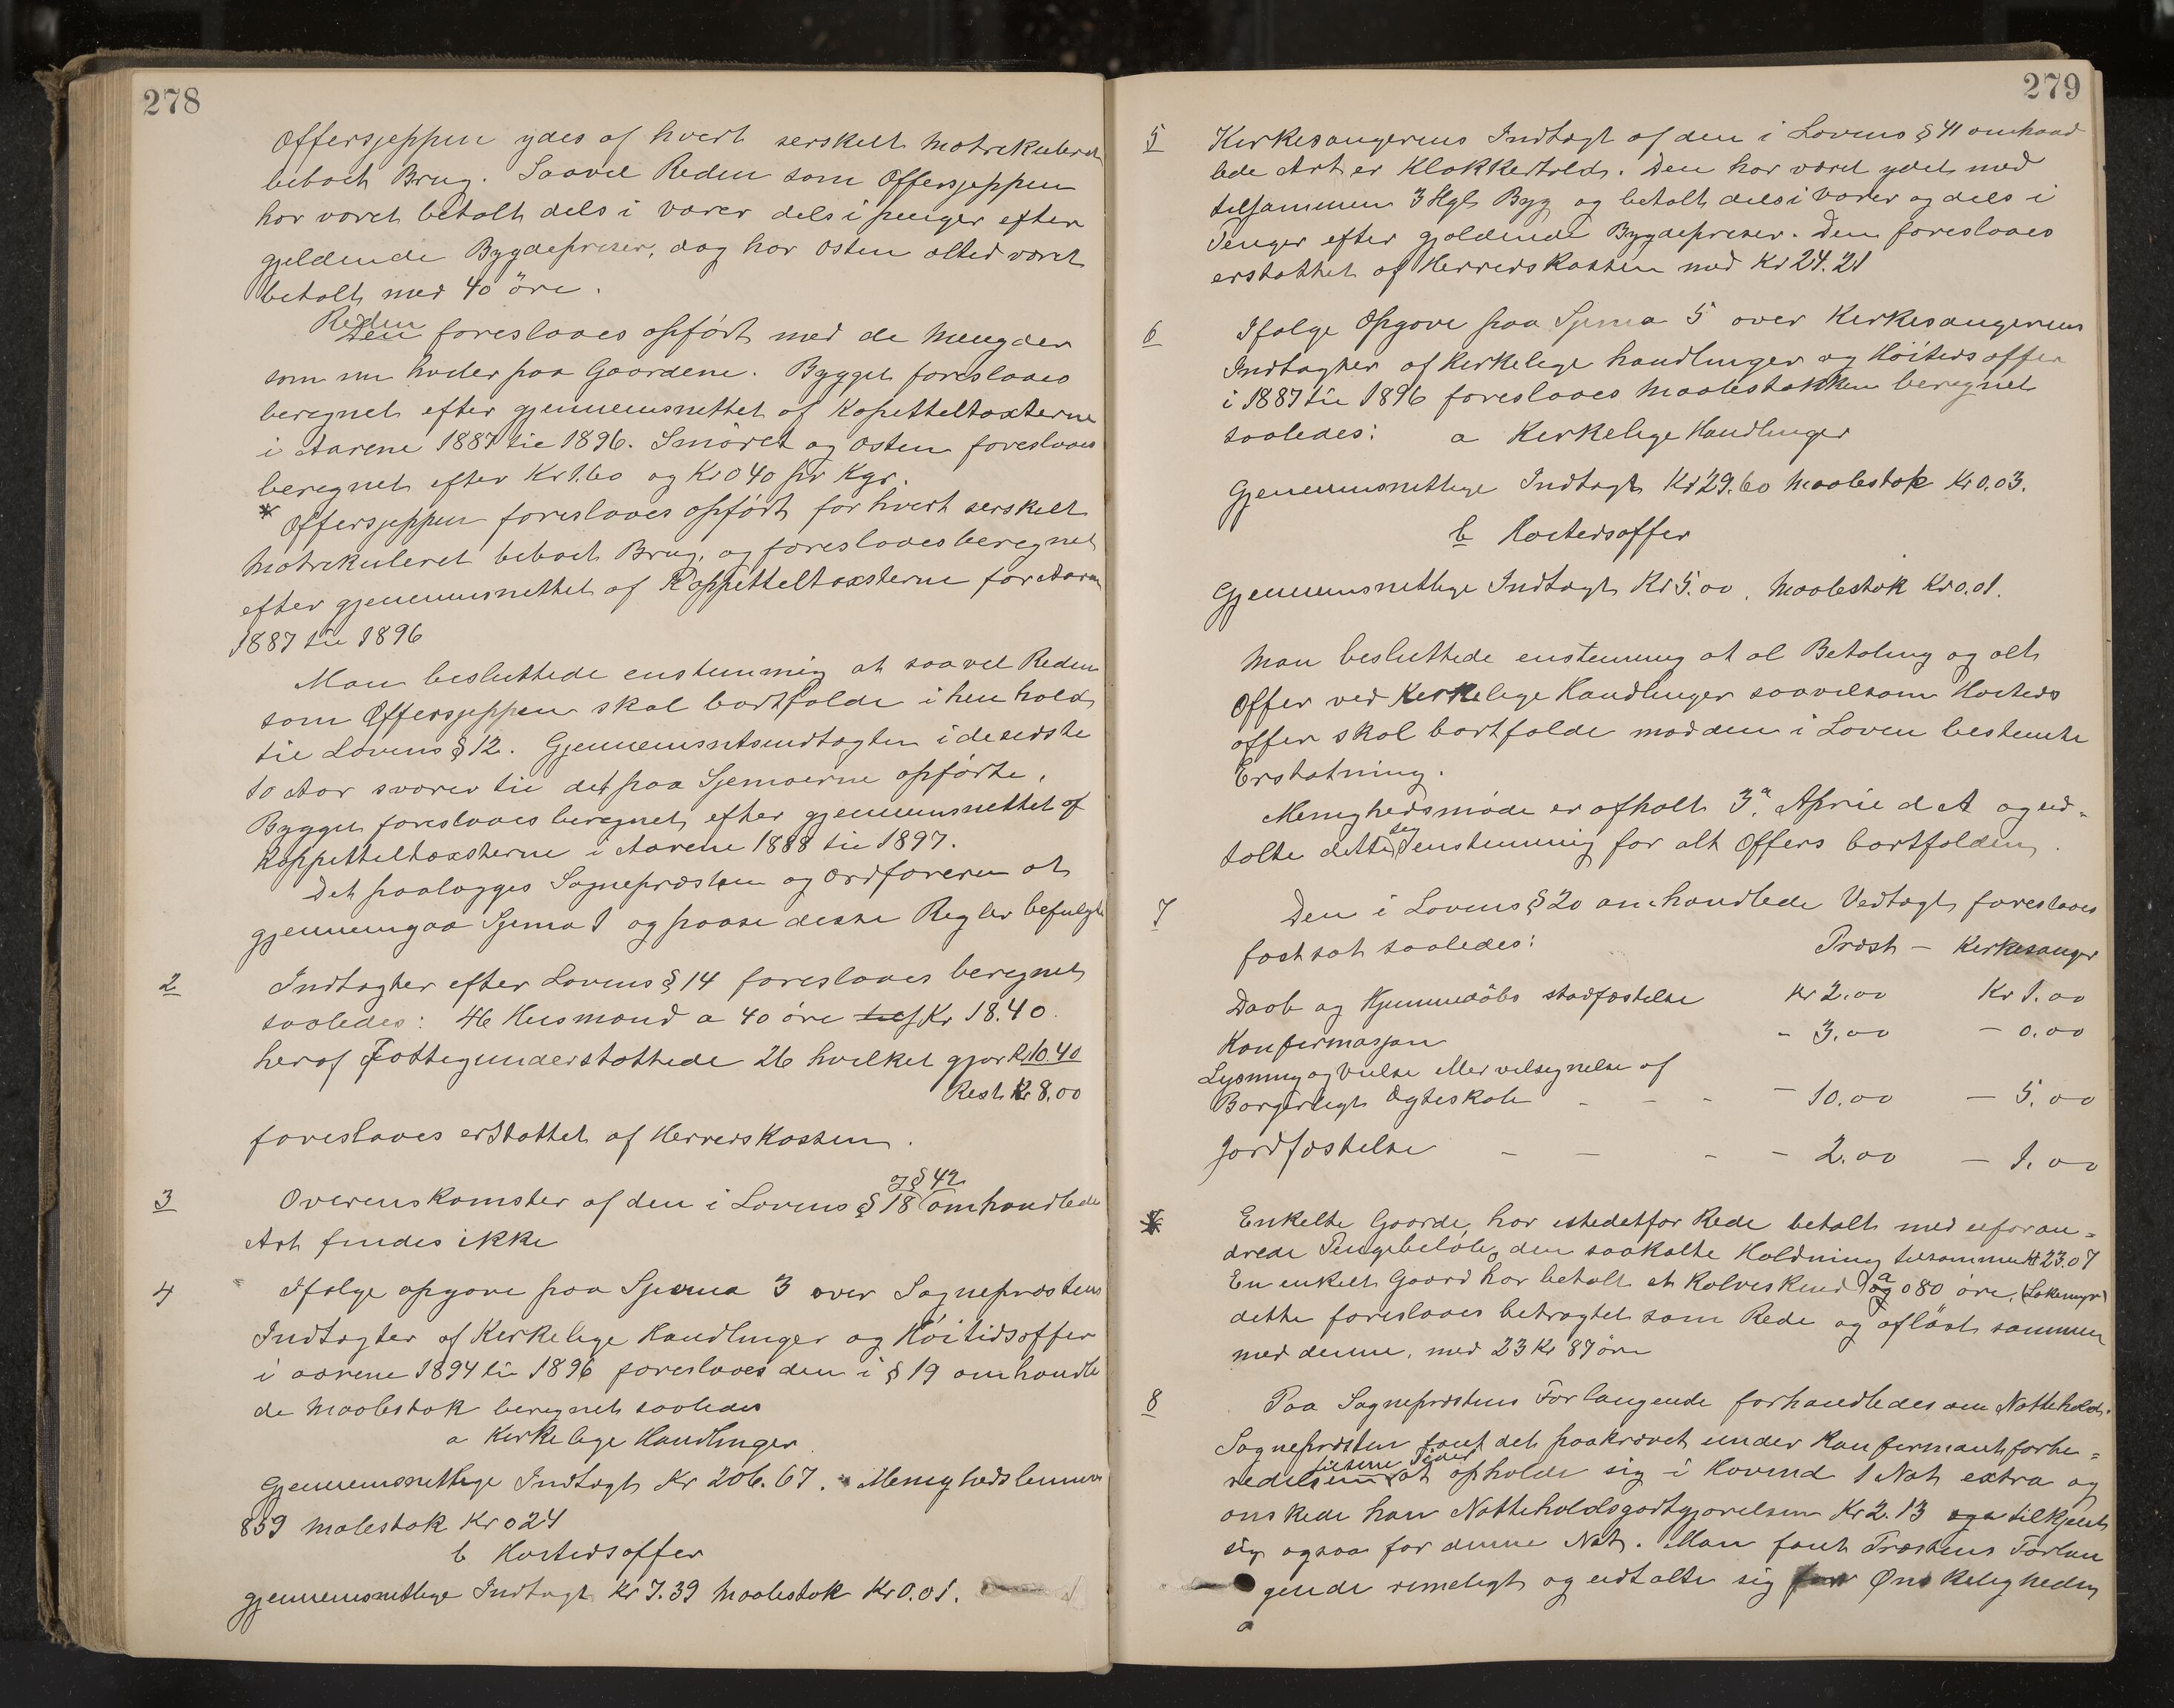 278
Offersjeppen ydes af hvert serskelt Matrekuleret
beboet Brug. Saavel Reden som Offersjeppen
har været betalt dels i varer dels i penger efter
gjeldende Bygdepriser, dog har Osten altid været
betalt med 40 öre.
Reden
Den foreslaaes opført med de Mengder
som nu hviler paa Gaardene. Bygget foreslaaes
beregnet efter gjennemsnettet af Kapetteltaxterne
i Aarene 1887 til 1896. Smöret og Osten foreslaaes
beregnet efter Kr 1.60 og Kr 0 40 pr Kgr.
* Offersjeppen foreslaaes opført for hvert serskelt
Matrekuleret beboet Brug, og foreslaaes beregnet
efter gjennemsnettet af Kappetteltaxsterne for Aarene
1887 til 1896
Man besluttede enstemmig at saavel Reden
som Offersjeppen skal bortfalde i henhold
til Lovens § 12. Gjennemsnitsindtagten i de sidste
10 Aar svarer til det paa Sjemaerne opførte.
Bygget foreslaaes beregnet efter gjennemsnettet af
Kappetteltaxsterne i Aarene 1888 til 1897.
Det paalægges Sognepræsten og Ordføreren at
gjennemgaa Sjema 1 og paase disse Regler befulgte
2 Indtægter efter Lovens § 14 foreslaaes beregnet
saaledes: 46 Husmænd a 40 öre Kr 18.40.
heraf Fattigunderstøttede 26 hvilket gjør Kr 10.40
Rest Kr 8.00
foreslaaes erstattet af Herredskassen.
og § 42
3 Overenskomster af den i Lovens § 18 omhandlede
Art findes ikke
4 Ifølge opgave paa Sjema 3 over Sognepræstens
Indtægter af Kerkelige Handlinger og Høitidsoffer
i aarene 1894 til 1896 foreslaaes den i § 19 omhandle
de Maalestok beregnet saaledes
a Kerkelige Handlinger
Gjennemsnettlige Indtægt Kr 206.67. Menighedslemmer
859 Malestok Kr 0 24
b Høitidsoffer
gjennemsnetlige Indtægt Kr 7.39 Maalestok Kr 0.01.
279
5 Kerkesangerens Indtægt af den i Lovens § 41 omhand
lede Art er Klokkertold. Den har været ydet med
tilsammen 3 Hgl Byg og betalt dels i Varer og dels i
Penger efter gjældende Bygdepriser. Den foreslaaes
erstattet af Herredskassen med Kr 24.21
6 Ifølge Opgave paa Sjema 5 over Kerkesangerens
Indtægter af Kerkelige handlinger og Höitidsoffer
i 1887 til 1896 foreslaaes Maalestokken beregnet
saaledes: a Kerkelige Handlinger
Gjennemsnettlige Indtægt Kr 29.60 Maalestok Kr 0.03.
b Høitidsoffer
Gjennemsnettlige Indtægt Kr 5.00. Maalestok Kr 0.01.
Man besluttede enstemmig at al Betaling og alt
Offer ved Kerkelige Handlinger saavelsom Høitids
offer skal bortfalde mod den i Loven bestemte
Erstatning.
Menighedsmøde er afholt 3. April d A og ud-
seg
talte dette enstemmig for alt Offers bortfalden.
7 Den i Lovens § 20 omhandlede Vedtægt foreslaaes
fastsat saaledes: Præst – Kerkesanger
Daab og Hjemmedöbs stadfæstelse Kr 2.00 Kr 1.00
Konfirmasjon - 3.00 - 0.00
Lysning og Vielse eller velsignelse af
Borgerligt Ægteskab - - - - 10.00 - 5.00
Jordfæstelse - - - - 2.00 - 1.00
* Enkelte Gaarde har istedetfor Rede betalt med uforan-
drede Pengebeløb, den saakalte Holdning tilsammen Kr 23.07
En enkelt Gaard har betalt et Kalveskind a 0 80 öre,
dette foreslaaes betragtet som Rede og afløst sammen
med denne, med 23 Kr 87 öre
8 Paa Sognepræstens Forlangende forhandledes om Nattehold.
Sognepræsten fant det paakrævet under Konfirmantforbe-
redelsen at opholde sig i Hovind 1 Nat extra og
ønskede han Nattholdsgodtgjørelsen Kr 2.13 tilkjent
sig ogsaa for denne Nat. Man fant Præstens Forlan
gende rimeligt og udtalte sig for Ønskeligheden
a